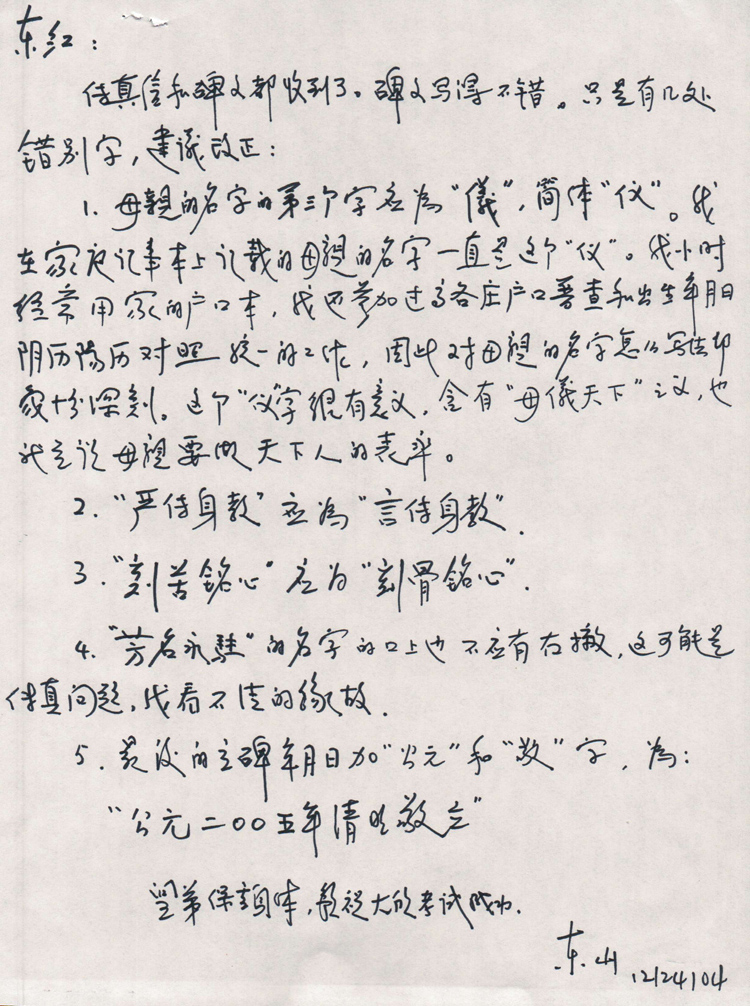 东红：
传真信和碑文都收到了。碑文写得不错。只是有几处
错别字，建议改正：
1. 母親的名字的第三个字应为“儀”，简体“仪”。我
在家庭记事本上记载的母親的名字一直是这个“仪”。我小时
经常用家的户口本，我也参加过高各庄户口普查和出生年月日
阴历陽历对照统一的工作，因此对母親的名字怎么写法印
象十分深刻。这个“仪”字很有意义，含有“母儀天下”之义，也
就是说母親要做天下人的表率。
2. “严传身教”应為“言传身教”.
3. “刻苦铭心”应为“刻骨铭心”.
4. “芳名永駐”的名字的口上也不应有右撇，这可能是
传真问题，我看不清的缘故.
5. 最后的立碑年月日加“公元”和“敬”字，為：
“公元二〇〇五年清明敬立”
望弟保重身体，敬祝大欣考试成功.
东山 12/24/04